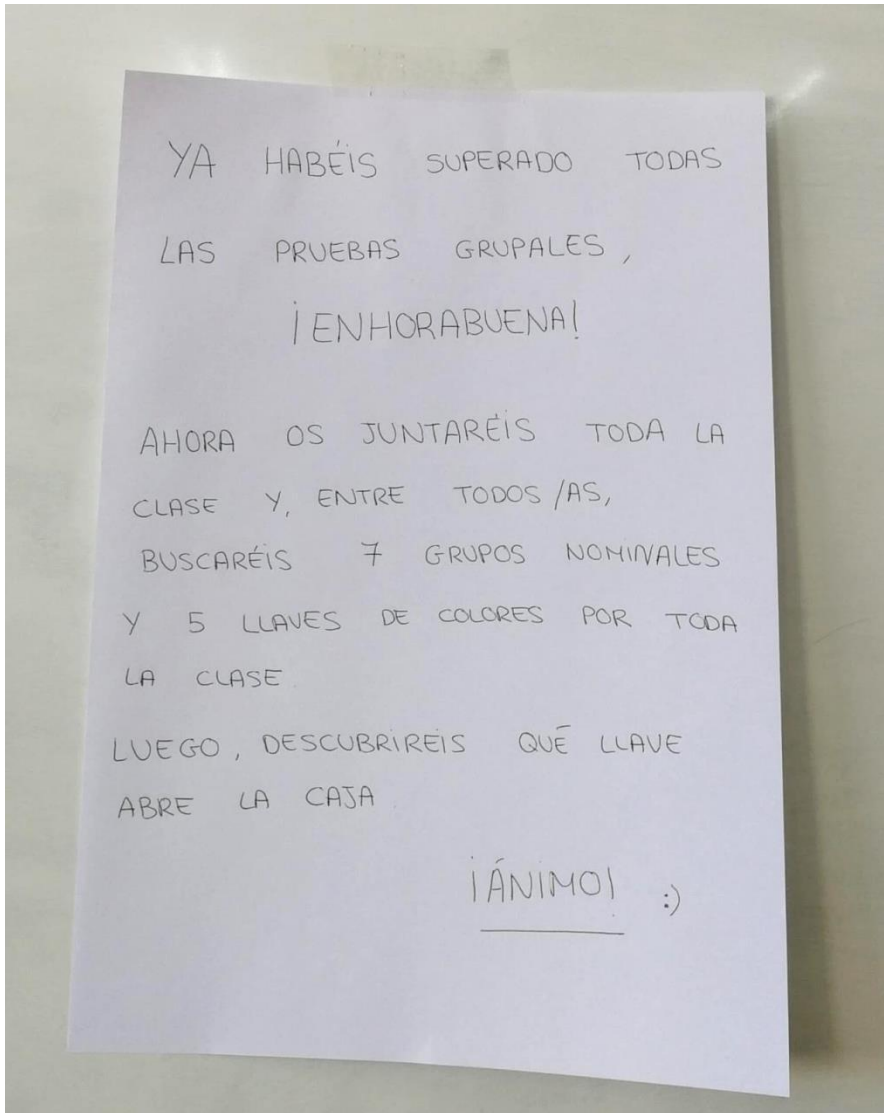 YA HABÉIS SUPERADO TODAS
LAS PRUEBAS GRUPALES,
¡ENHORABUENA!
AHORA OS JUNTARÉIS TODA LA
CLASE Y, ENTRE TODOS/AS,
BUSCARÉIS 7 GRUPOS NOMINALES
Y 5 LLAVES DE COLORES POR TODA
LA CLASE.
LUEGO, DESCUBRIREIS QUÉ LLAVE
ABRE LA CAJA.
¡ÁNIMO! :)